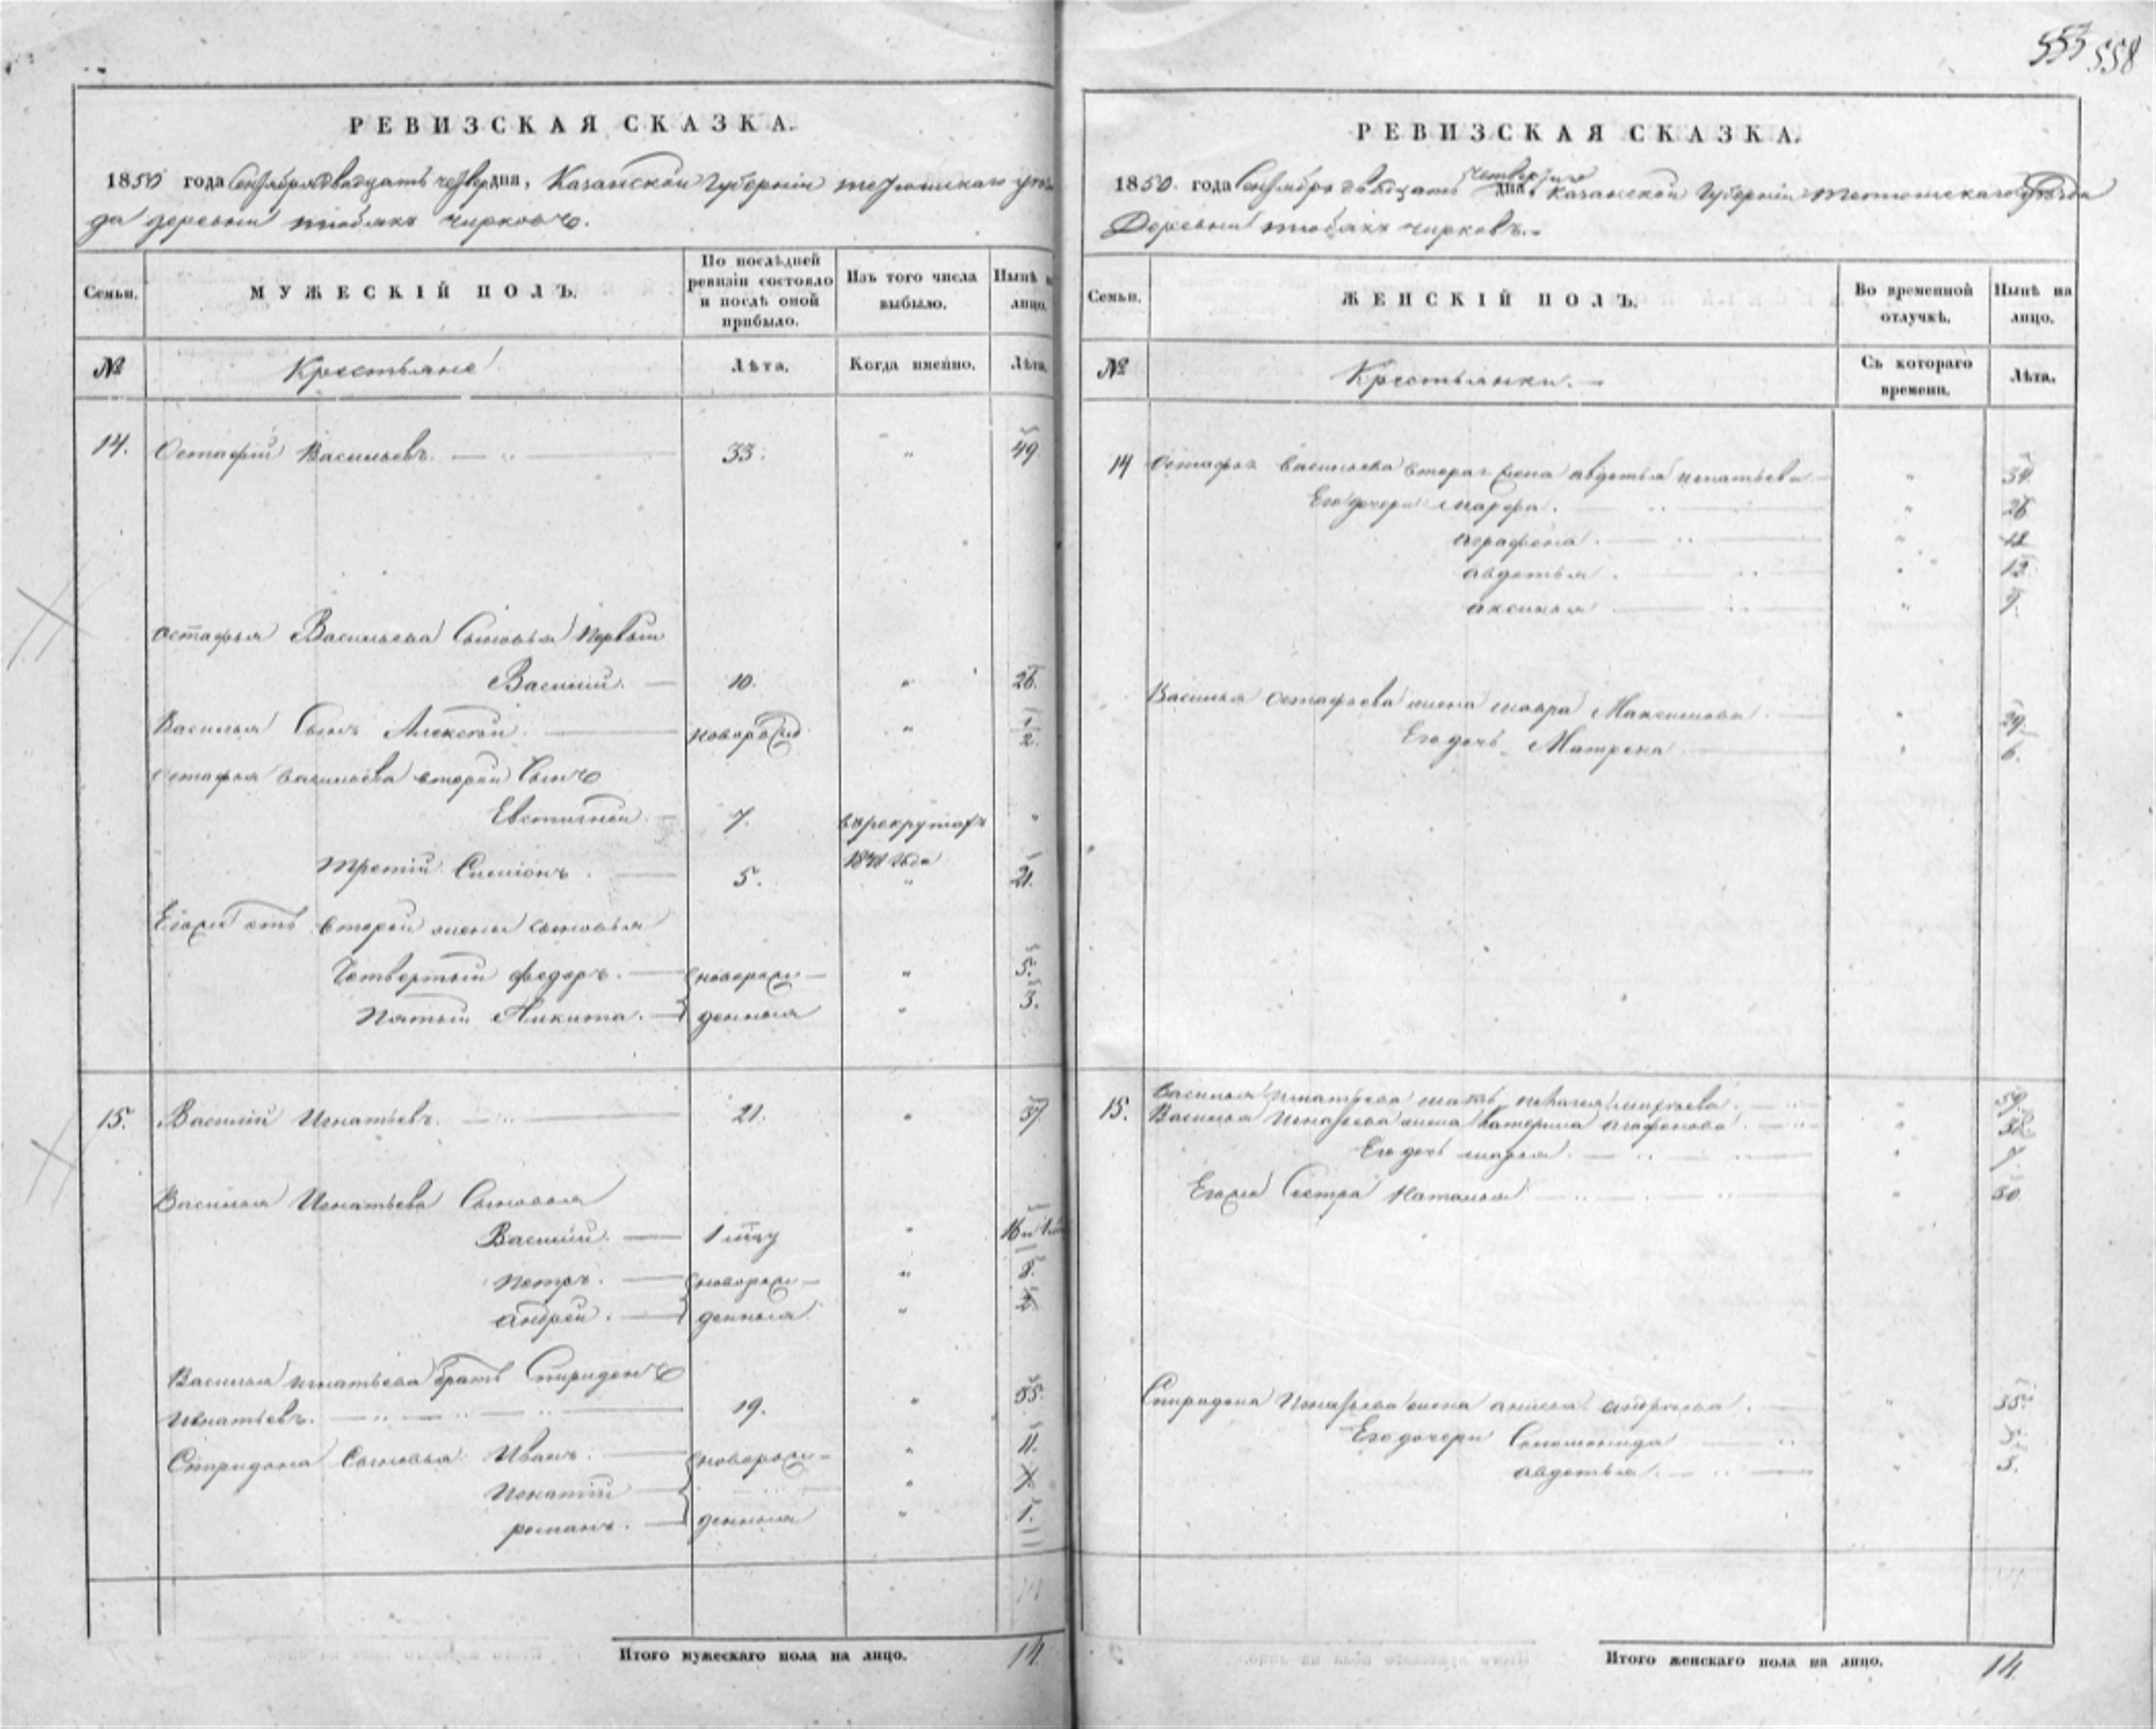 553 558
РЕВИЗСКАЯ СКАЗКА.
1850 года Сентября двадцать четвер дня, Казанской Губернiи тетюшскаго уѣз
да деревни тюбякъ чирковъ.
Семьи.
МУЖЕСКIЙ ПОЛЪ.
По послѣдней ревизiи состояло и послѣ оной прибыло.
Изъ того числа выбыло.
Нынѣ н лицо.
№
Крестьяне
Лѣта.
Когда именно.
Лѣта.
14. Остафiй Васильевъ. 33. " 49.
Остафья Васильева Сыновья первый
Василiй. 10. " 26.
Василья Сынъ Алексей. новорожд " 1/2.
Остафья Васильева второй Сынъ
Евстигней. 7. в рекрутахъ "
1841 года
третiй Симiонъ. 5. " 21.
Егоже отъ второй жены сыновья
Четвертый федоръ. новорож- " 5.
Пятый Никита. денныя " 3.
15. Василiй Игнатьевъ. 21. " 37
Василья Игнатьева Сыновья
Василiй. 1 мцу " 16 и 1
петръ. новорож- " 8.
андрей. денныя "
Василья игнатьева братъ Спиридонъ
игнатьевъ. 19. " 35.
Спиридона Сыновья Иванъ. новорож- " 11.
Игнатiй "
романъ. денныя " 1.
Итого мужескаго пола на лицо. 14.
РЕВИЗСКАЯ СКАЗКА.
1850. года Сентября двадцать четвертаго дна, Казанской Губернiи тетюшскаго уѣзда
Деревни тюбякъ чирковъ.
Семьи.
ЖЕНСКIЙ ПОЛЪ.
Во временной отлучкѣ.
Нынѣ на лицо.
№
Крестьянки.
Съ котораго времени.
Лѣта.
14 Остафья Васильева вторая жена авдотья игнатьева " 34.
Его дочери марфа. " 26
аграфена. "
авдотья. " 12.
аксинья "
Василья Остафьева жена мавра Максимова. " 29.
Его дочь Матрена " 6.
15. Василья игнатьева мать " 59.
Василья Игнатьева жена катерина агафонова. " 38.
Его дочь марья. " 7.
Егоже Сестра наталья " 30.
Спиридона Игнатьева жена анисья андреева. " 35.
Его дочери Соломонида " 5.
авдотья. " 3.
Итого женскаго пола на лицо. 14.